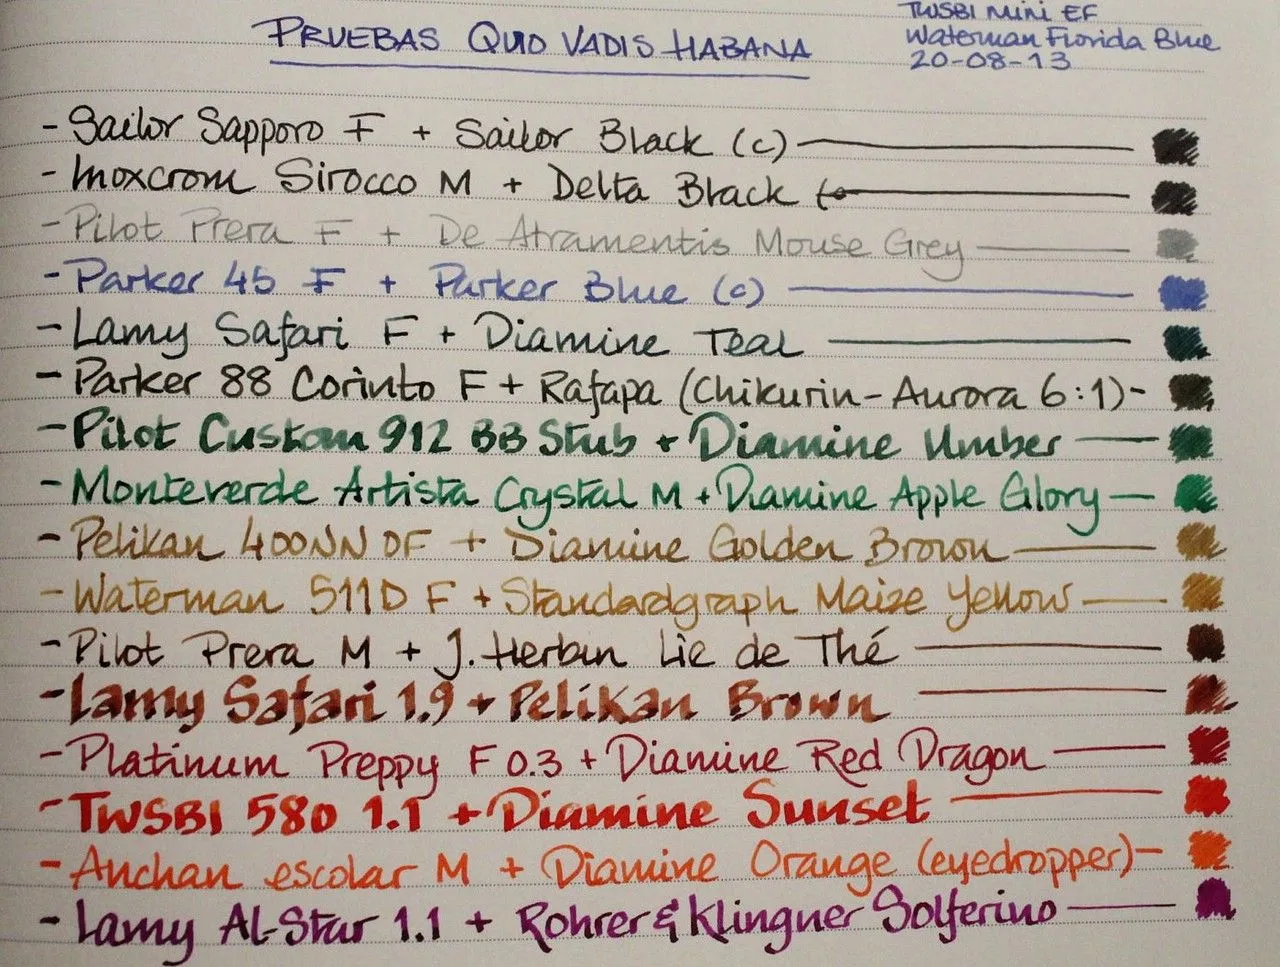 PRUEBAS QUO VADIS HABANA
TWSBI MINI EF
Waterman Florida Blue
20-08-13
- Sailor Sapporo F + Sailor Black (c)
- Inoxcrom Sirocco M + Delta Black
- Pilot Prera F + De Atramentis Mouse Grey
- Parker 45 F + Parker Blue (c)
- Lamy Safari F + Diamine Teal
- Parker 88 Corinto F + Rafapa (Chikurin-Aurora 6:1)-
- Pilot Custom 912 BB Stub + Diamine Umber
- Monteverde Artista Crystal M + Diamine Apple Glory
- Pelikan 400NN OF + Diamine Golden Brown
- Waterman 511D F + Standardgraph Maize Yellow
- Pilot Prera M + J. Herbin Lie de Thé
- Lamy Safari 1.9 + Pelikan Brown
- Platinum Preppy F 0.3 + Diamine Red Dragon
- TWSBI 580 1.1 + Diamine Sunset
- Anchan escolar M + Diamine Orange (eyedropper)-
- Lamy Al-Star 1.1 + Rohrer & Klingner Solferino